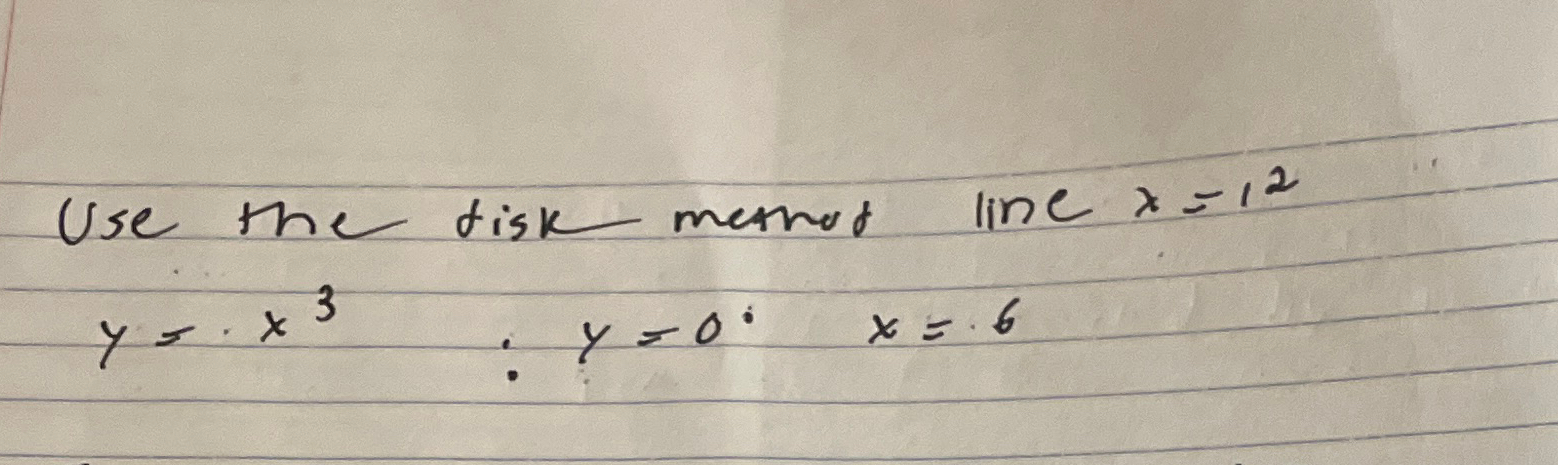 Use the disk method line x = 12
y = x³ ; y = 0 ; x = 6